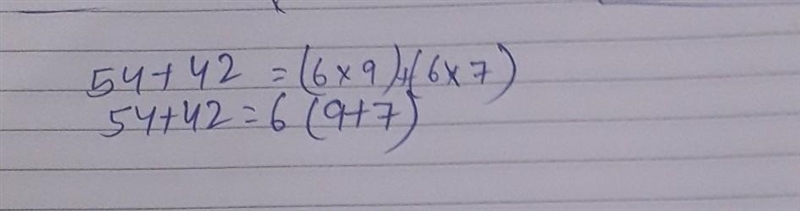 54+42 = (6×9)+(6×7)
54+42=6(9+7)